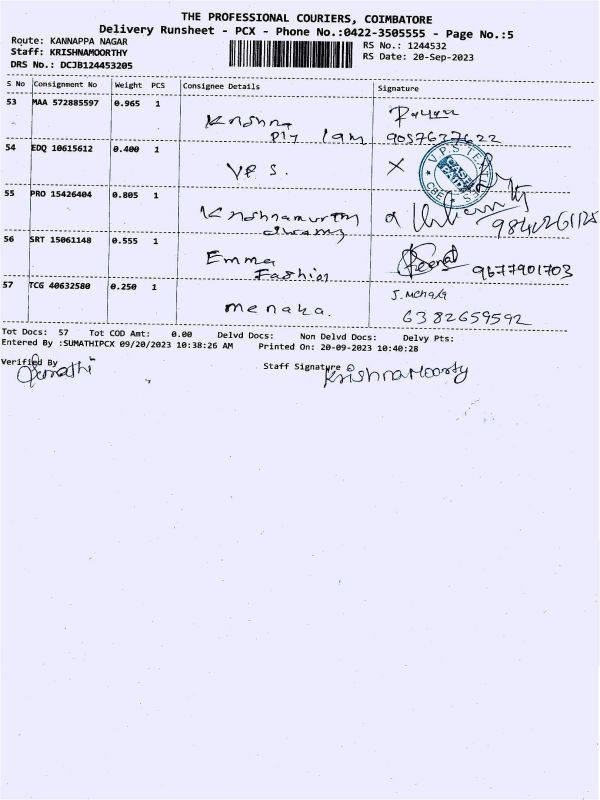 THE PROFESSIONAL COURIERS, COIMBATORE
Delivery Runsheet - PCX - Phone No.:0422-3505555 - Page No.:5
Route: KANNAPPA NAGAR
Staff: KRISHNAMOORTHY
DRS No.: DCJB124453205
RS No.: 1244532
RS Date: 20-Sep-2023
S No Consignment No Weight PCS Consignee Details Signature
53 MAA 572885597 0.965 1
Krishna
Ply lam 9057637622
54 EDQ 10615612 0.400 1
V.P.S. X V.P.S TEX
CBE
55 PRO 15426404 0.805 1
Krishnamurthy
swamy
56 SRT 15061148 0.555 1
Emma
Fashion 9677901703
57 TCG 40632580 0.250 1 S. Menaka
menaka. 6382659592
Tot Docs: 57 Tot COD Amt: 0.00 Delvd Docs: Non Delvd Docs: Delvy Pts:
Entered By :SUMATHIPCX 09/20/2023 10:38:26 AM Printed On: 20-09-2023 10:40:28
Verified By
Staff Signature KrishnaMoorty